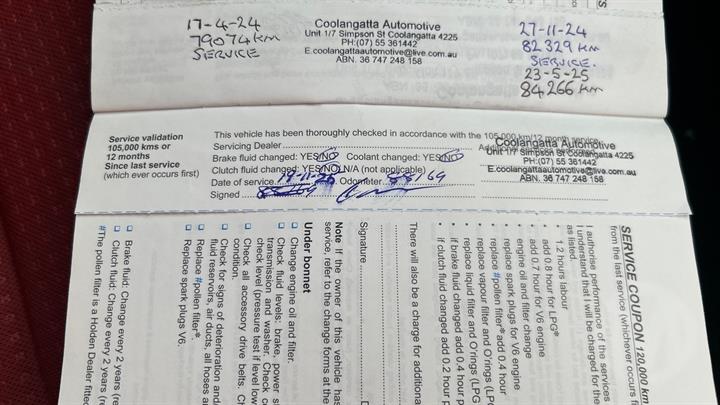 17-4-24
79074 KM
SERVICE
Coolangatta Automotive
Unit 1/7 Simpson St Coolangatta 4225
PH:(07) 55 361442
E.coolangattaautomotive@live.com.au
ABN. 36 747 248 158
27-11-24
82329 KM
SERVICE.
23-5-25
84266 KM
Service validation
105,000 kms or
12 months
Since last service
(which ever occurs first)
This vehicle has been thoroughly checked in accordance with the 105,000 km/12 month service.
Servicing Dealer
Brake fluid changed: YES/NO Coolant changed: YES/NO
Clutch fluid changed: YES/NO N/A (not applicable)
Date of service Odometer
Signed
Coolangatta Automotive
Unit 1/7 Simpson St Coolangatta 4225
PH:(07) 55 361442
E.coolangattaautomotive@live.com.au
ABN. 36 747 248 158
SERVICE COUPON 120,000 km
from the last service (whichever occurs f
I authorise performance of the services
I understand that I will be charged for the
as listed.
• 1.2 hours labour
• add 0.8 hour for LPG*
• add 0.7 hour for V6 engine
• engine oil and filter change
• replace spark plugs for V6 engine
• replace #pollen filter* add 0.4 hour
• replace vapour filter and O'rings (LPG
• replace liquid filter and O'rings (LPG
• if brake fluid changed add 0.4 hour p
• if clutch fluid changed add 0.2 hour p
There will also be a charge for additional
Signature
Note If the owner of this vehicle has
service, refer to the change forms at the
Under bonnet
Change engine oil and filter.
Check fluid levels: brake, power s
transmission and washer. Check c
check level (pressure test if level low
Check all accessory drive belts. Ch
condition.
Check for signs of deterioration and
fluid reservoirs, air ducts, all hoses a
Replace #pollen filter*.
Replace spark plugs V6.
Brake fluid: Change every 2 years (re
Clutch fluid: Change every 2 years (re
#The pollen filter is a Holden Dealer fitted